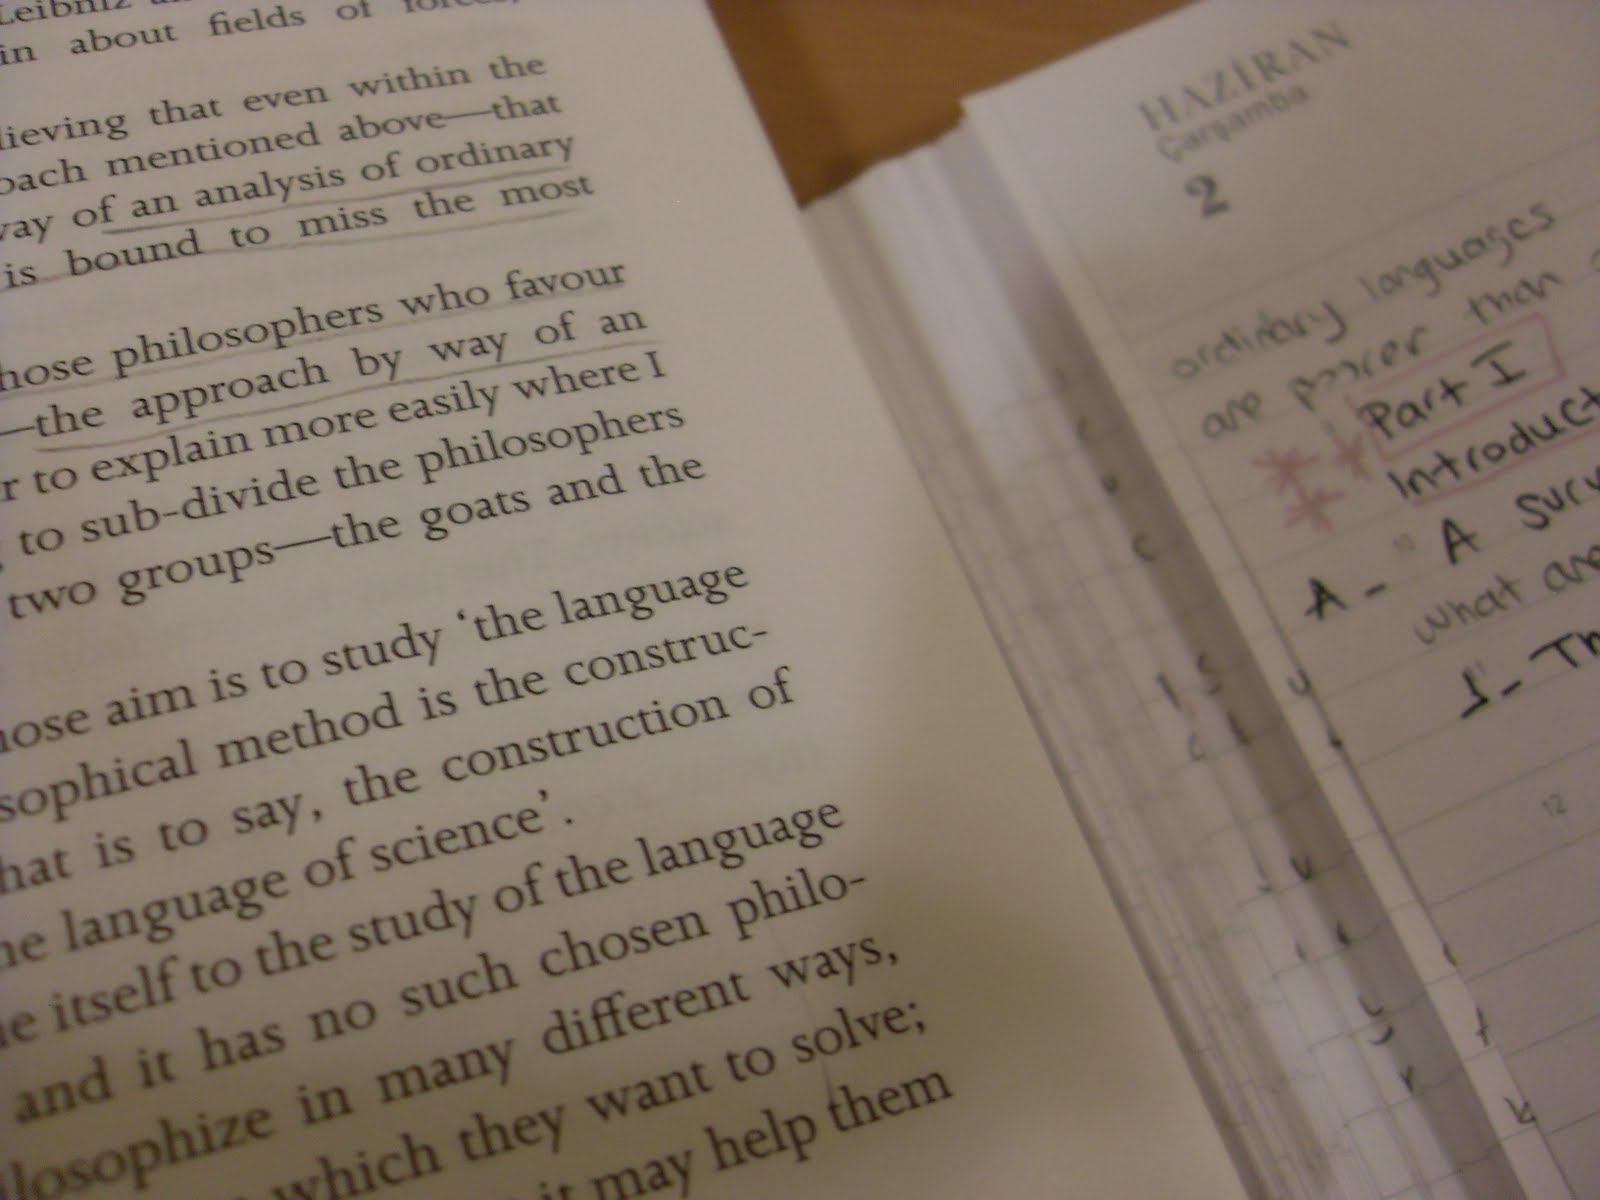 Leibniz
in about fields of forces,
lieving that even within the
oach mentioned above—that
way of an analysis of ordinary
is bound to miss the most
hose philosophers who favour
—the approach by way of an
r to explain more easily where I
to sub-divide the philosophers
two groups—the goats and the
hose aim is to study ‘the language
sophical method is the construc-
hat is to say, the construction of
he language of science’.
ne itself to the study of the language
and it has no such chosen philo-
ilosophize in many different ways,
which they want to solve;
it may help them
HAZİRAN
Çarşamba
2
ordinary languages
are poorer than
Part I
Introduct
A - " A Surv
what are
1 - Th
12